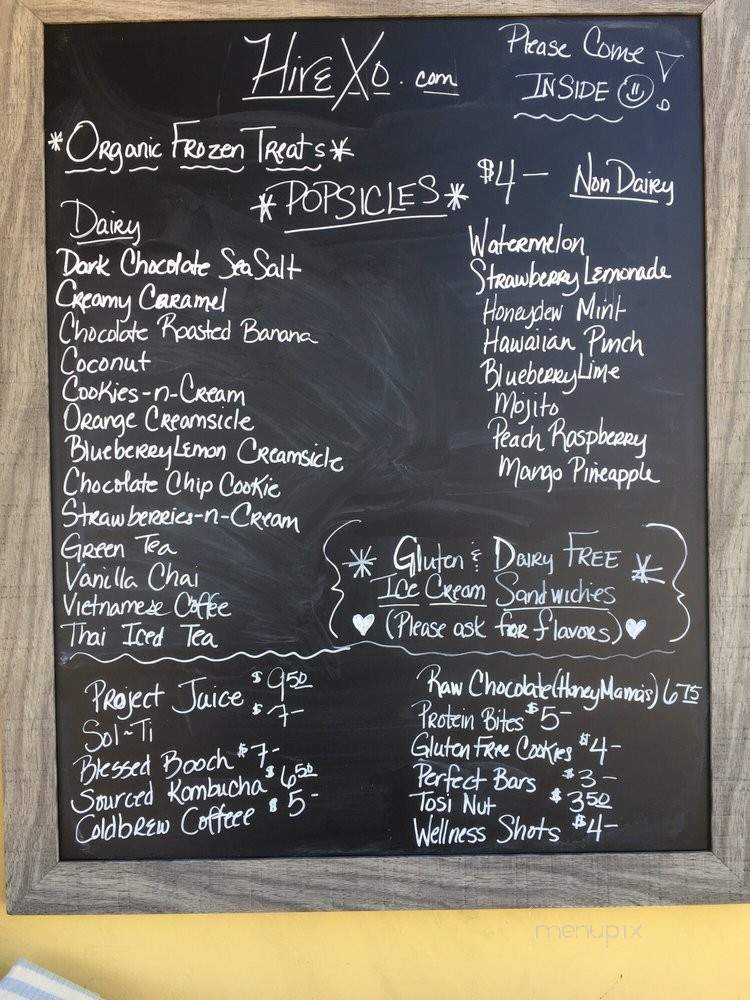 HireXo.com
Please Come
INSIDE
*Organic Frozen Treats*
*POPSICLES*
$4- Non Dairy
Dairy
Dark Chocolate Sea Salt
Creamy Caramel
Chocolate Roasted Banana
Coconut
Cookies-n-Cream
Orange Creamsicle
Blueberry Lemon Creamsicle
Chocolate Chip Cookie
Strawberries-n-Cream
Green Tea
Vanilla Chai
Vietnamese Coffee
Thai Iced Tea
Watermelon
Strawberry Lemonade
Honeydew Mint
Hawaiian Punch
Blueberry Lime
Mojito
Peach Raspberry
Mango Pineapple
* Gluten & Dairy FREE *
Ice Cream Sandwichies
(Please ask for flavors)
Project Juice $9.50
Sol~Ti $7-
Blessed Booch $7-
Sourced Kombucha $6.50
Coldbrew Cofffee $5-
Raw Chocolate (Honey Mama's) 6.75
Protein Bites $5-
Gluten Free Cookies $4-
Perfect Bars $3-
Tosi Nut $3.50
Wellness Shots $4-
menupix